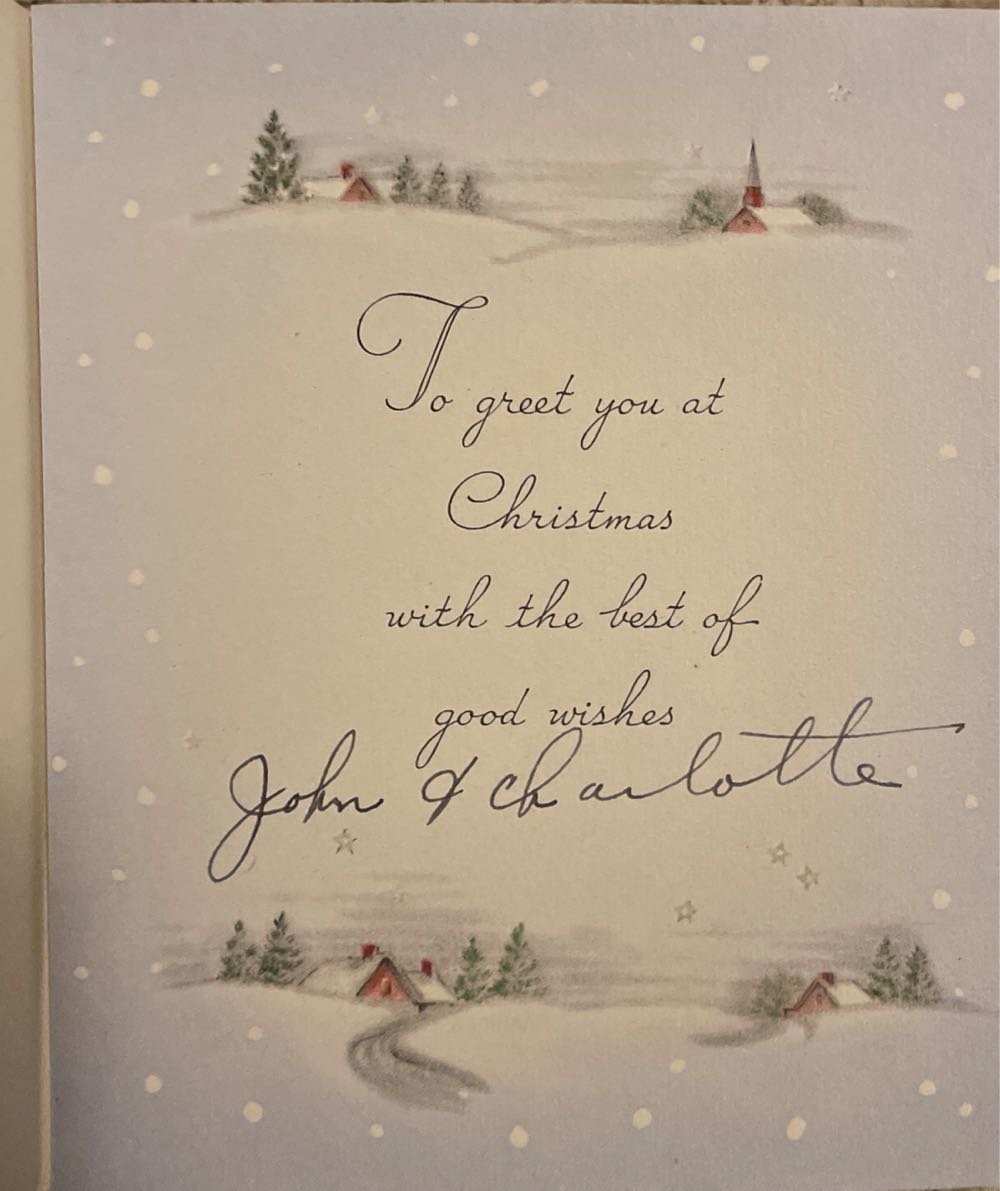 To greet you at
Christmas
with the best of
good wishes
John & Charlotte